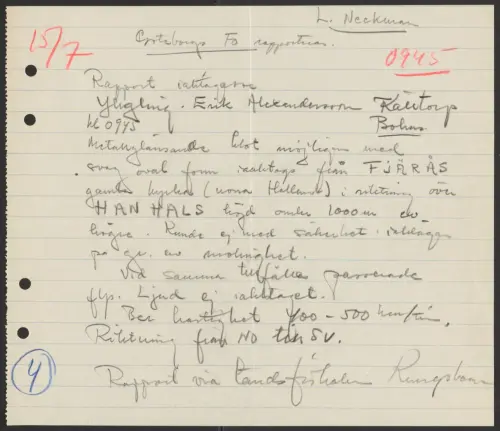 L. Neckman
15/7
Göteborgs Fo rapporterar.
0945
Rapport iakttagare
Yngling. Erik Alexandersson Källtorp
kl 0945 Bohus
Metallglänsande klot möjligen med
svag oval form iakttogs från FJÄRÅS
gamla kyrka (norra Halland) i riktning över
HANHALS höjd under 1000 m ev
högre. Kunde ej med säkerhet iakttagas
på gr. av molnighet.
Vid samma tillfälle passerade
flp. Ljud ej iakttaget.
Ber hastighet 400-500 km/tim.
Riktning från NO till SV.
4
Rapport via landsfiskalen Kungsbacka